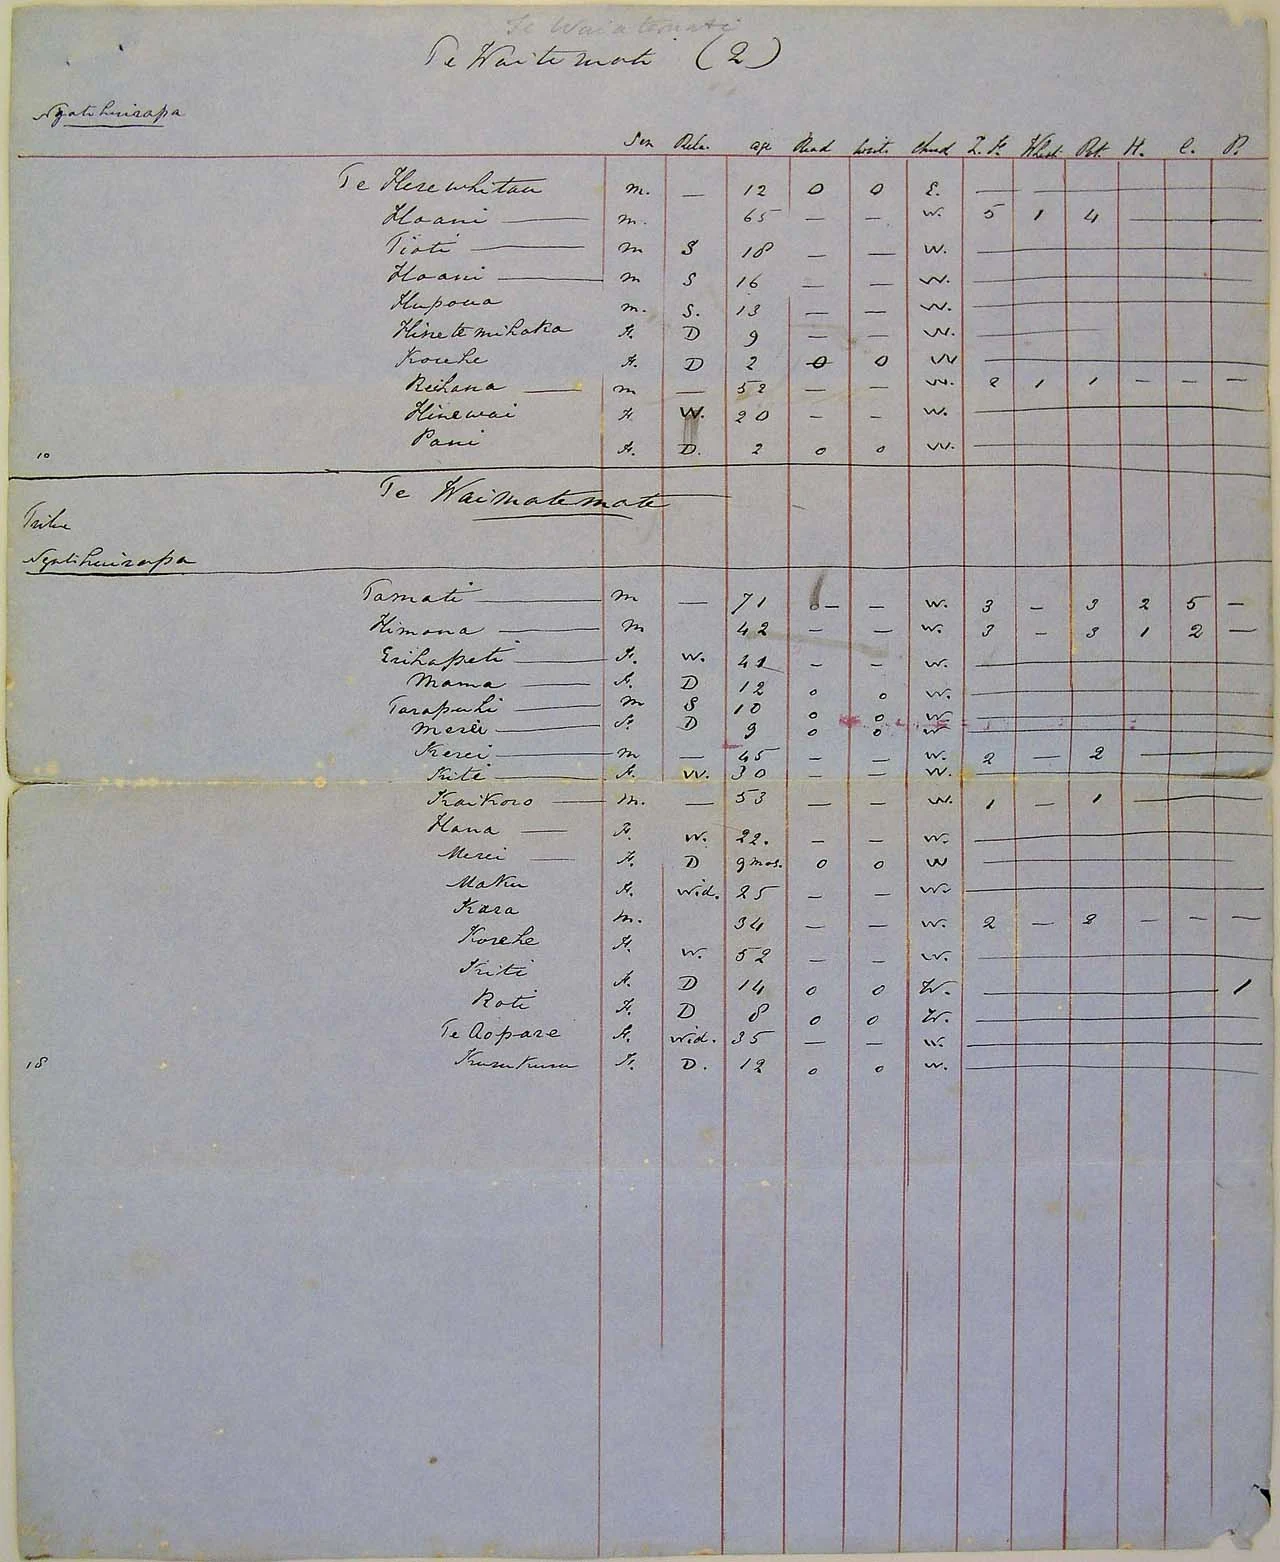 Te Waiatemati
Te Waitemati (2)
Ngatihuirapa
Sex Rela. age Read write Chud L. F. Wheat Pot. H. C. P.
Te Herewhitau m. — 12 0 0 E. — —
Haani — m. 65 — — W. 5 1 4 —
Tioti — m S 18 — — W. —
Haani — m S 16 — — W. —
Hupoua m. S. 13 — — W. —
Hinetemihaka F. D 9 — — W. —
Korehe F. D 2 0 0 W —
Reihana — m — 52 — — W. 2 1 1 — — —
Hinewai F. W. 20 — — W. —
Pani F. D. 2 0 0 W. —
10
Te Waimatemate
Tribe
Ngatihuirapa
Tamati — m — 71 — — W. 3 — 3 2 5 —
Himona — m 42 — — W. 3 — 3 1 2 —
Erihapeti — F. W. 41 — — W. —
Mama — F. D 12 0 0 W. —
Tarapuhi — m S 10 0 0 W —
Merei — F. D 9 0 0 W —
Kerei — m — 45 — — W. 2 — 2 —
Kiti — F. W. 30 — — W. —
Kaikoro — m. — 53 — — W. 1 — 1 —
Hana — F. W. 22. — — W. —
Merei — F. D 9 mos. 0 0 W —
Maku F. Wid. 25 — — W. —
Kara m. 34 — — W. 2 — 2 — — —
Korehe F. W. 52 — — W. —
Kiti F. D 14 0 0 W. — 1
Roti F. D 8 0 0 W. —
Te Aopare F. Wid. 35 — — W. —
18 Kurukuru F. D. 12 0 0 W. —